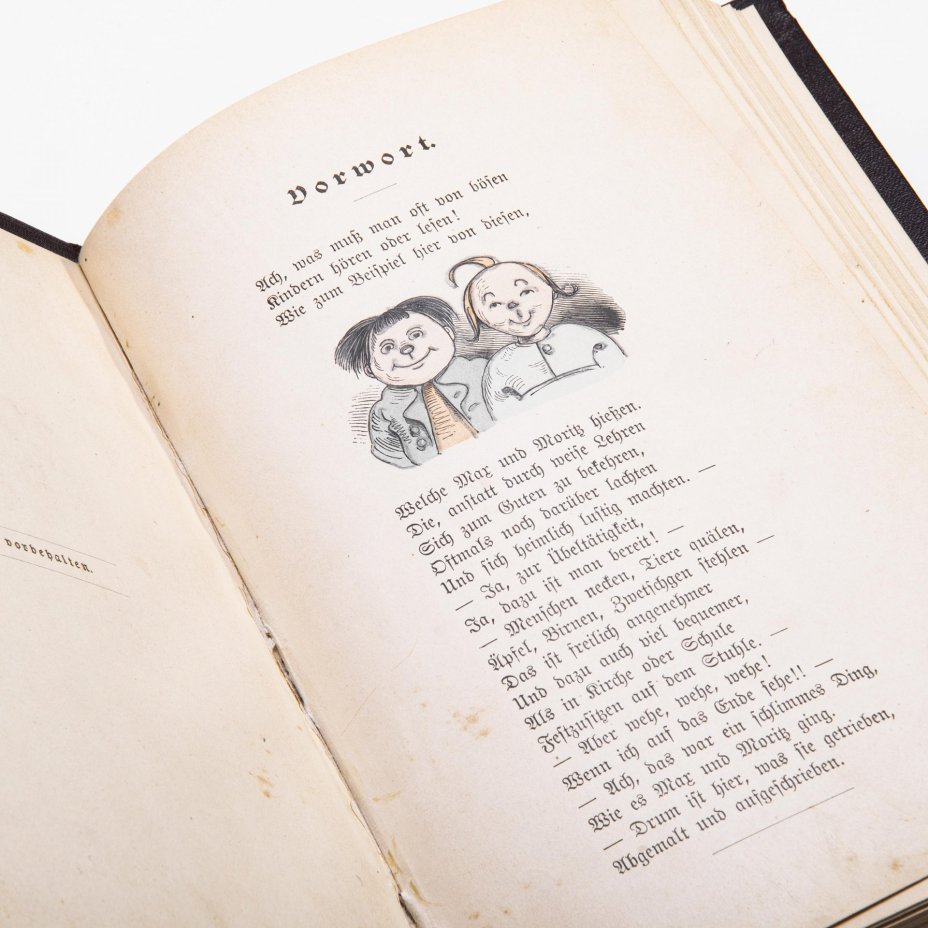 vorbehalten.
Vorwort.
Ach, was muß man oft von bösen
Kindern hören oder lesen!
Wie zum Beispiel hier von diesen,
Welche Max und Moritz hießen.
Die, anstatt durch weise Lehren
Sich zum Guten zu bekehren,
Oftmals noch darüber lachten
Und sich heimlich lustig machten. —
— Ja, zur Übeltätigkeit,
Ja, dazu ist man bereit! —
— Menschen necken, Tiere quälen,
Äpfel, Birnen, Zwetschgen stehlen —
Das ist freilich angenehmer
Und dazu auch viel bequemer,
Als in Kirche oder Schule
Festzusitzen auf dem Stuhle. —
— Aber wehe, wehe, wehe!
Wenn ich auf das Ende sehe!! —
— Ach, das war ein schlimmes Ding,
Wie es Max und Moritz ging.
— Drum ist hier, was sie getrieben,
Abgemalt und aufgeschrieben.